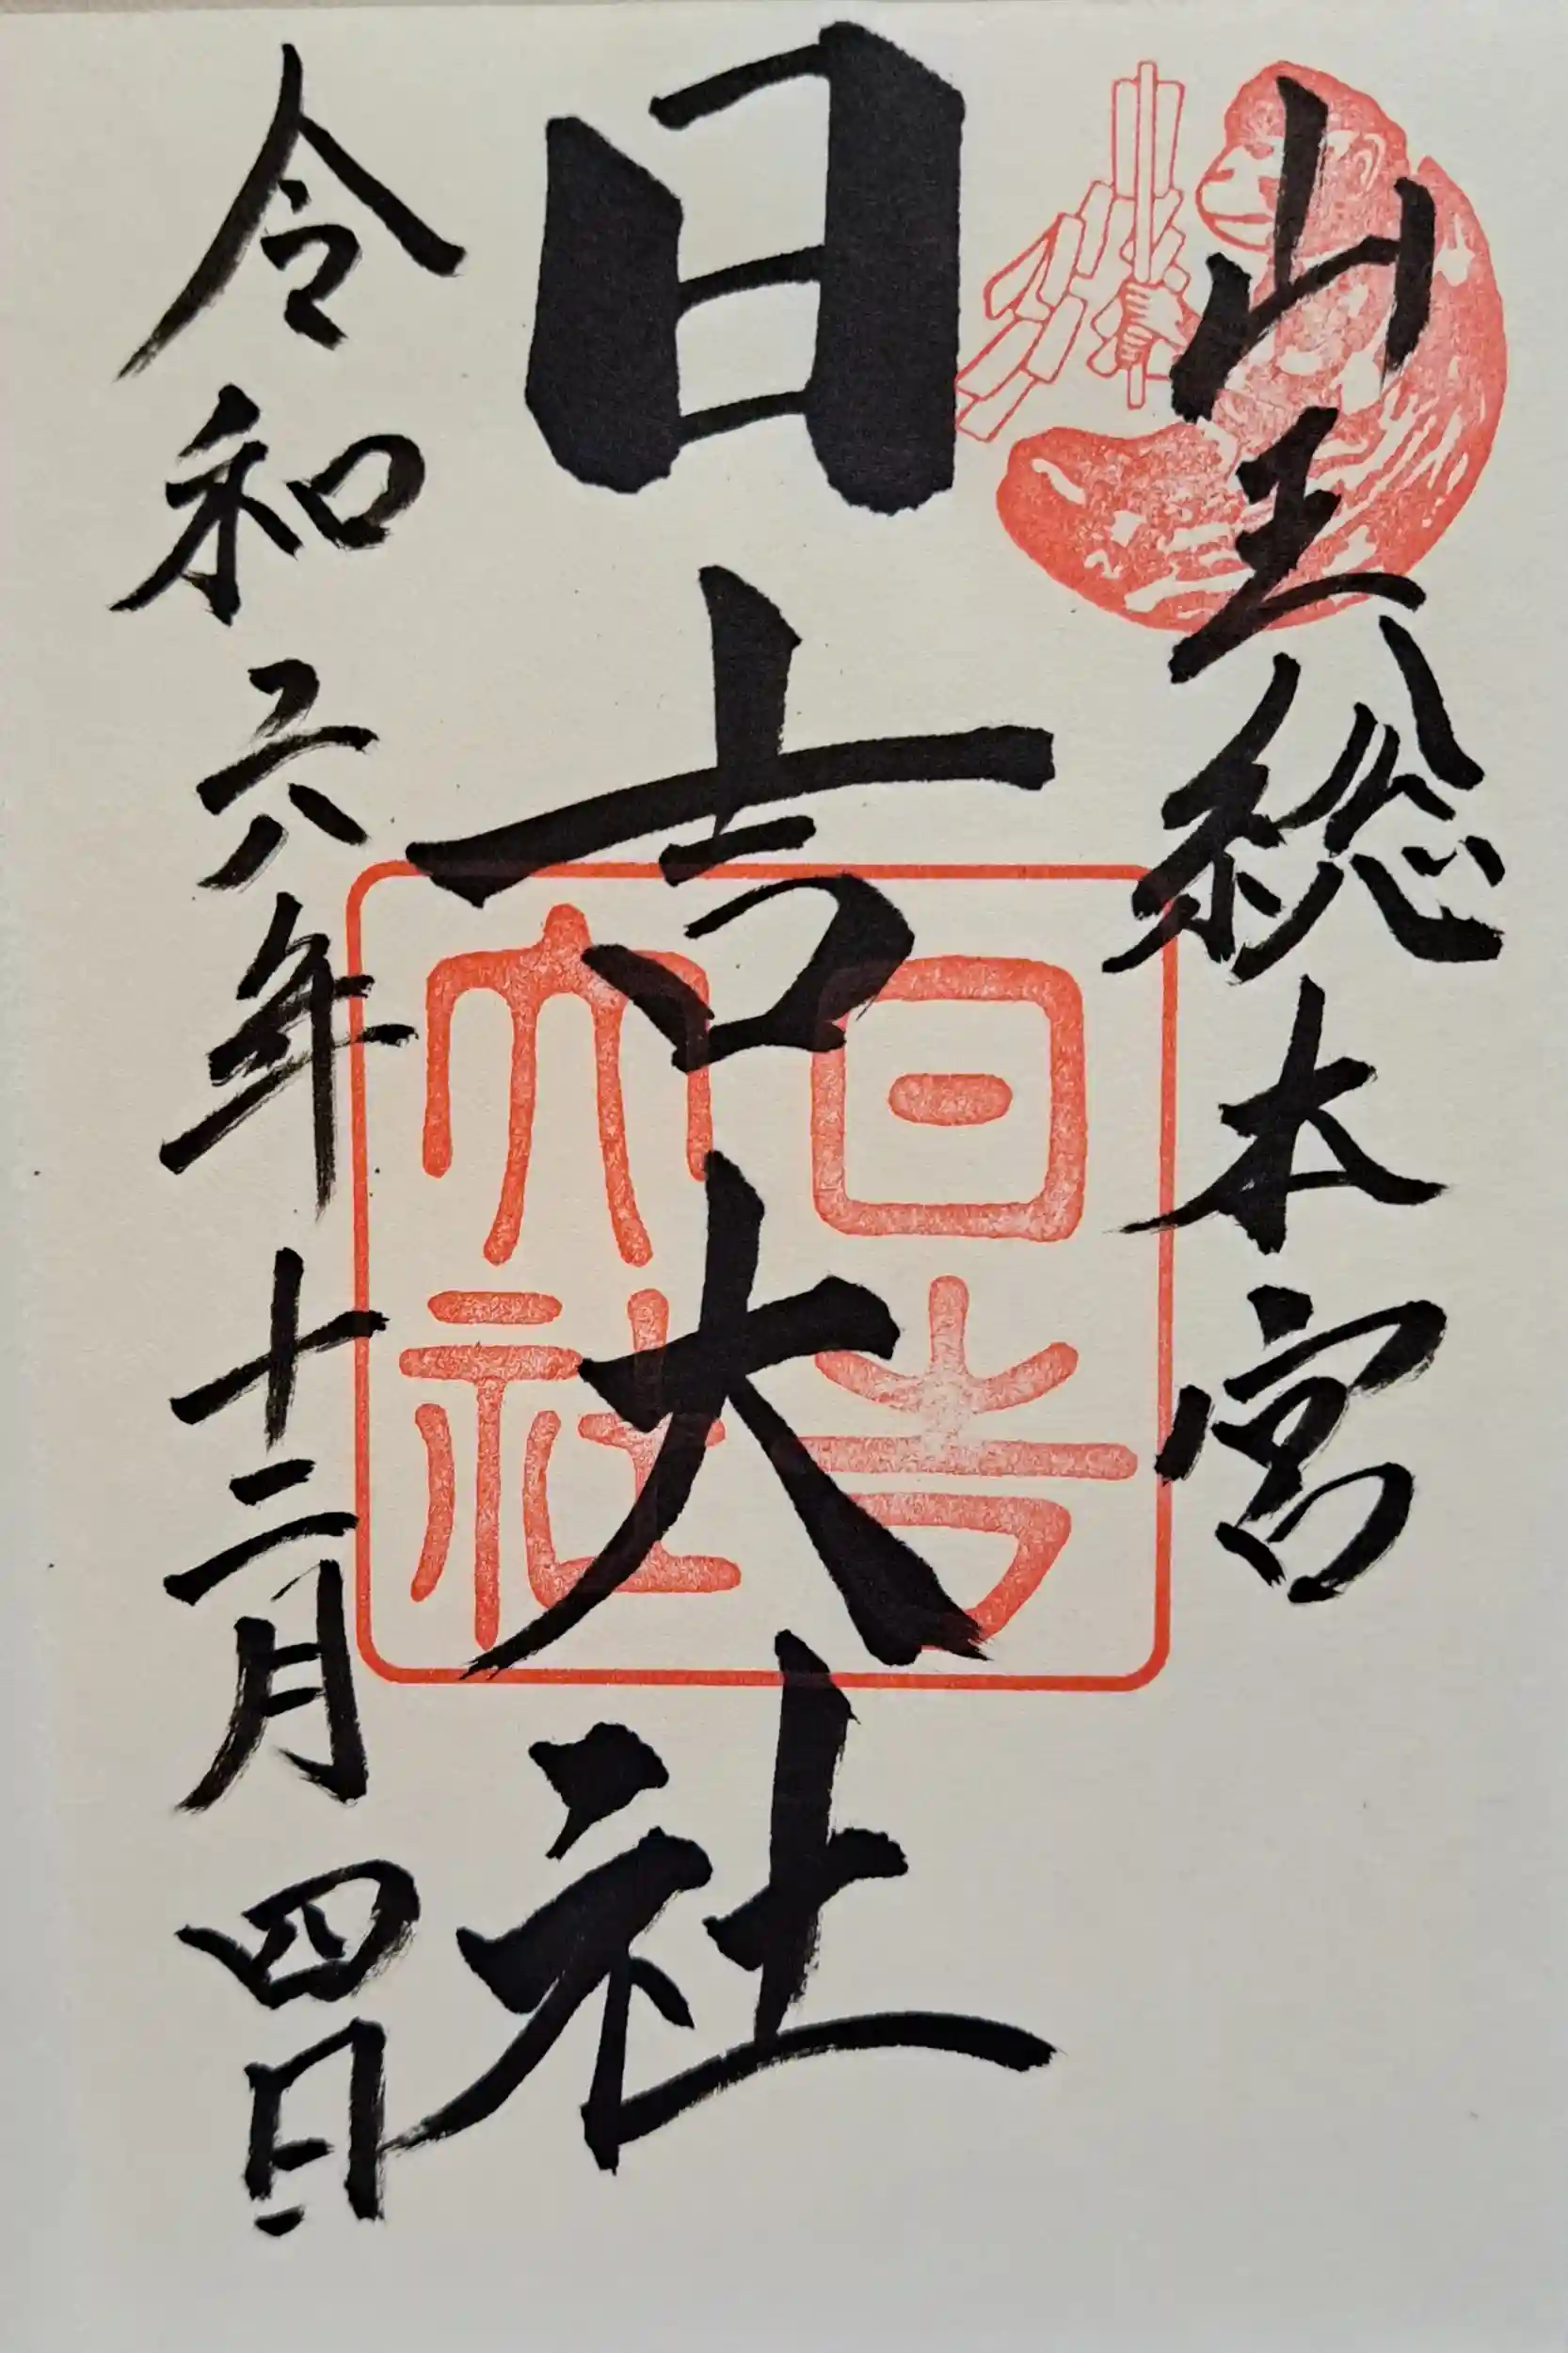 山王総本宮
日吉大社
日吉
大社
令和六年十二月四日